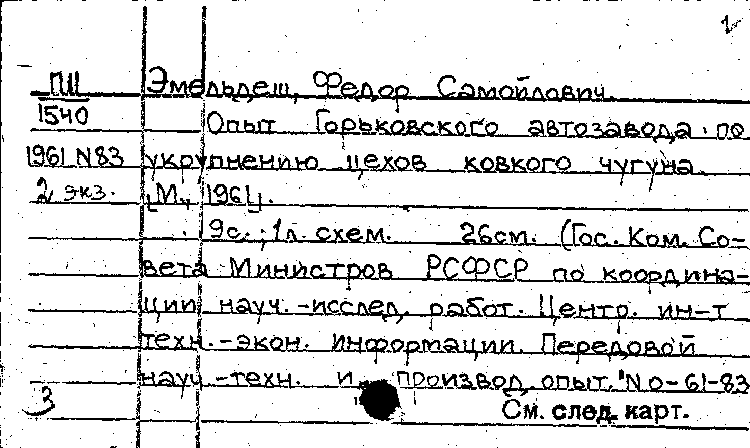 2
ПШ Эмельдеш, Федор Самойлович.
1540 Опыт Горьковского автозавода по
1961 N83 укрупнению цехов ковкого чугуна.
2 экз. [М., 1961].
9с.; 1л. схем. 26см. (Гос. Ком. Со-
вета Министров РСФСР по координа-
ции науч.-исслед. работ. Центр. ин-т
техн.-экон. информации. Передовой
науч.-техн. и производ. опыт. №0-61-83
3 См. след. карт.